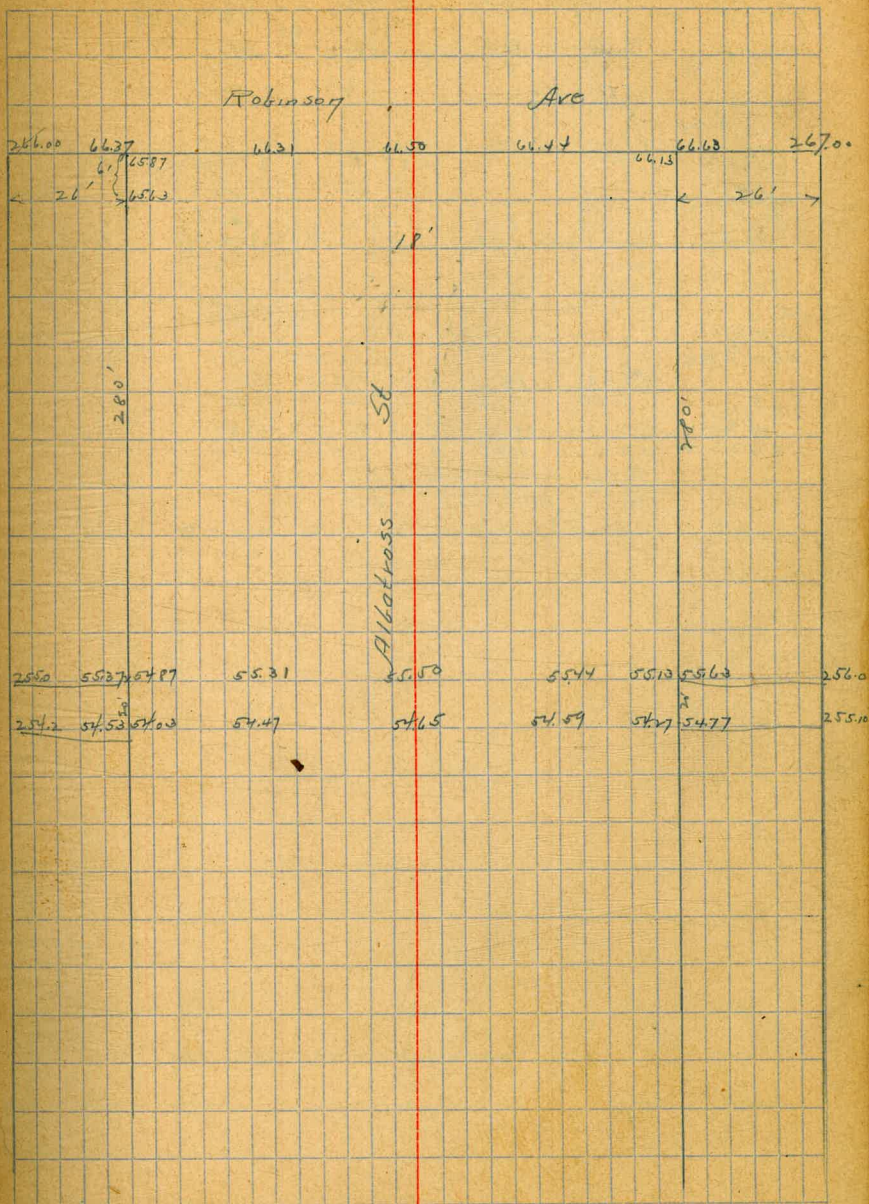 Robinson Ave
266.00 66.37 66.31 66.50 66.44 66.63 267.00
6' 65.87 66.13
26' 65.63 26'
18'
280' 280'
Albatross St
255.0 55.37 54.87 55.31 55.50 55.44 55.13 55.63 256.0
20' 20'
254.2 54.53 54.03 54.47 54.65 54.59 54.27 54.77 255.10